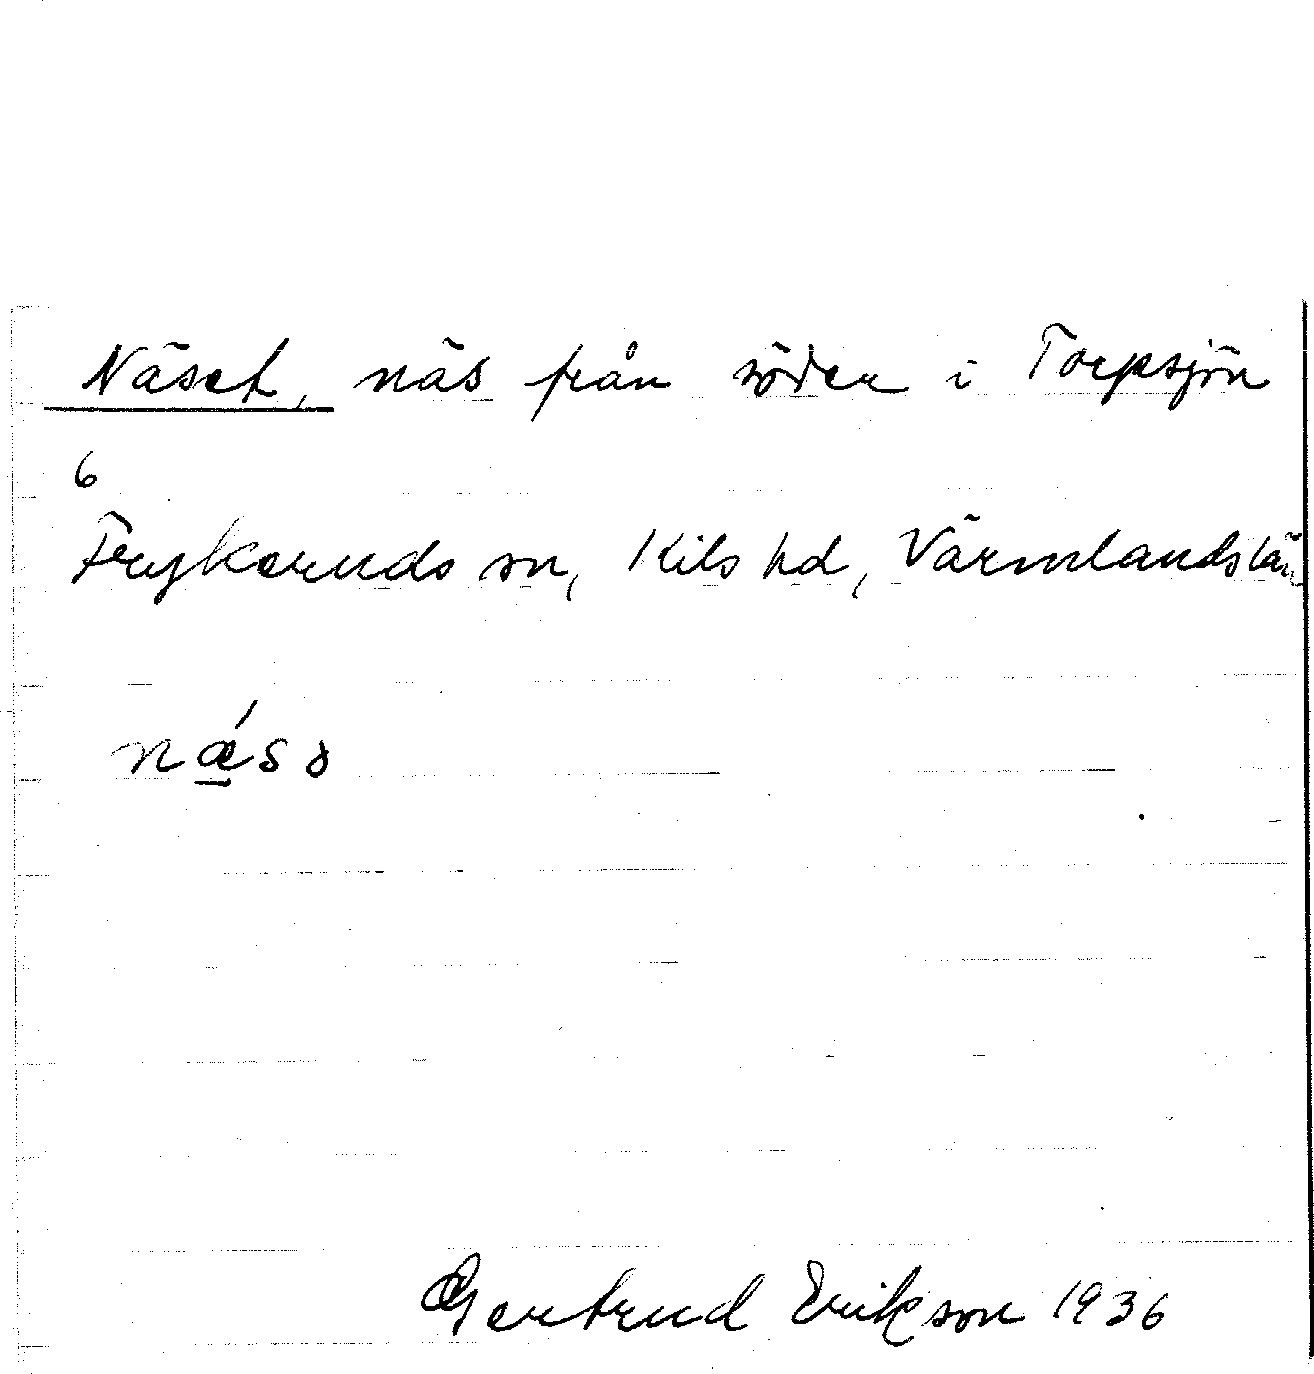 Näset, näs från söder i Torpsjön
6
Frykeruds sn, Kils hd, Värmlands län
nǽ̱sə
Gertrud Erikson 1936